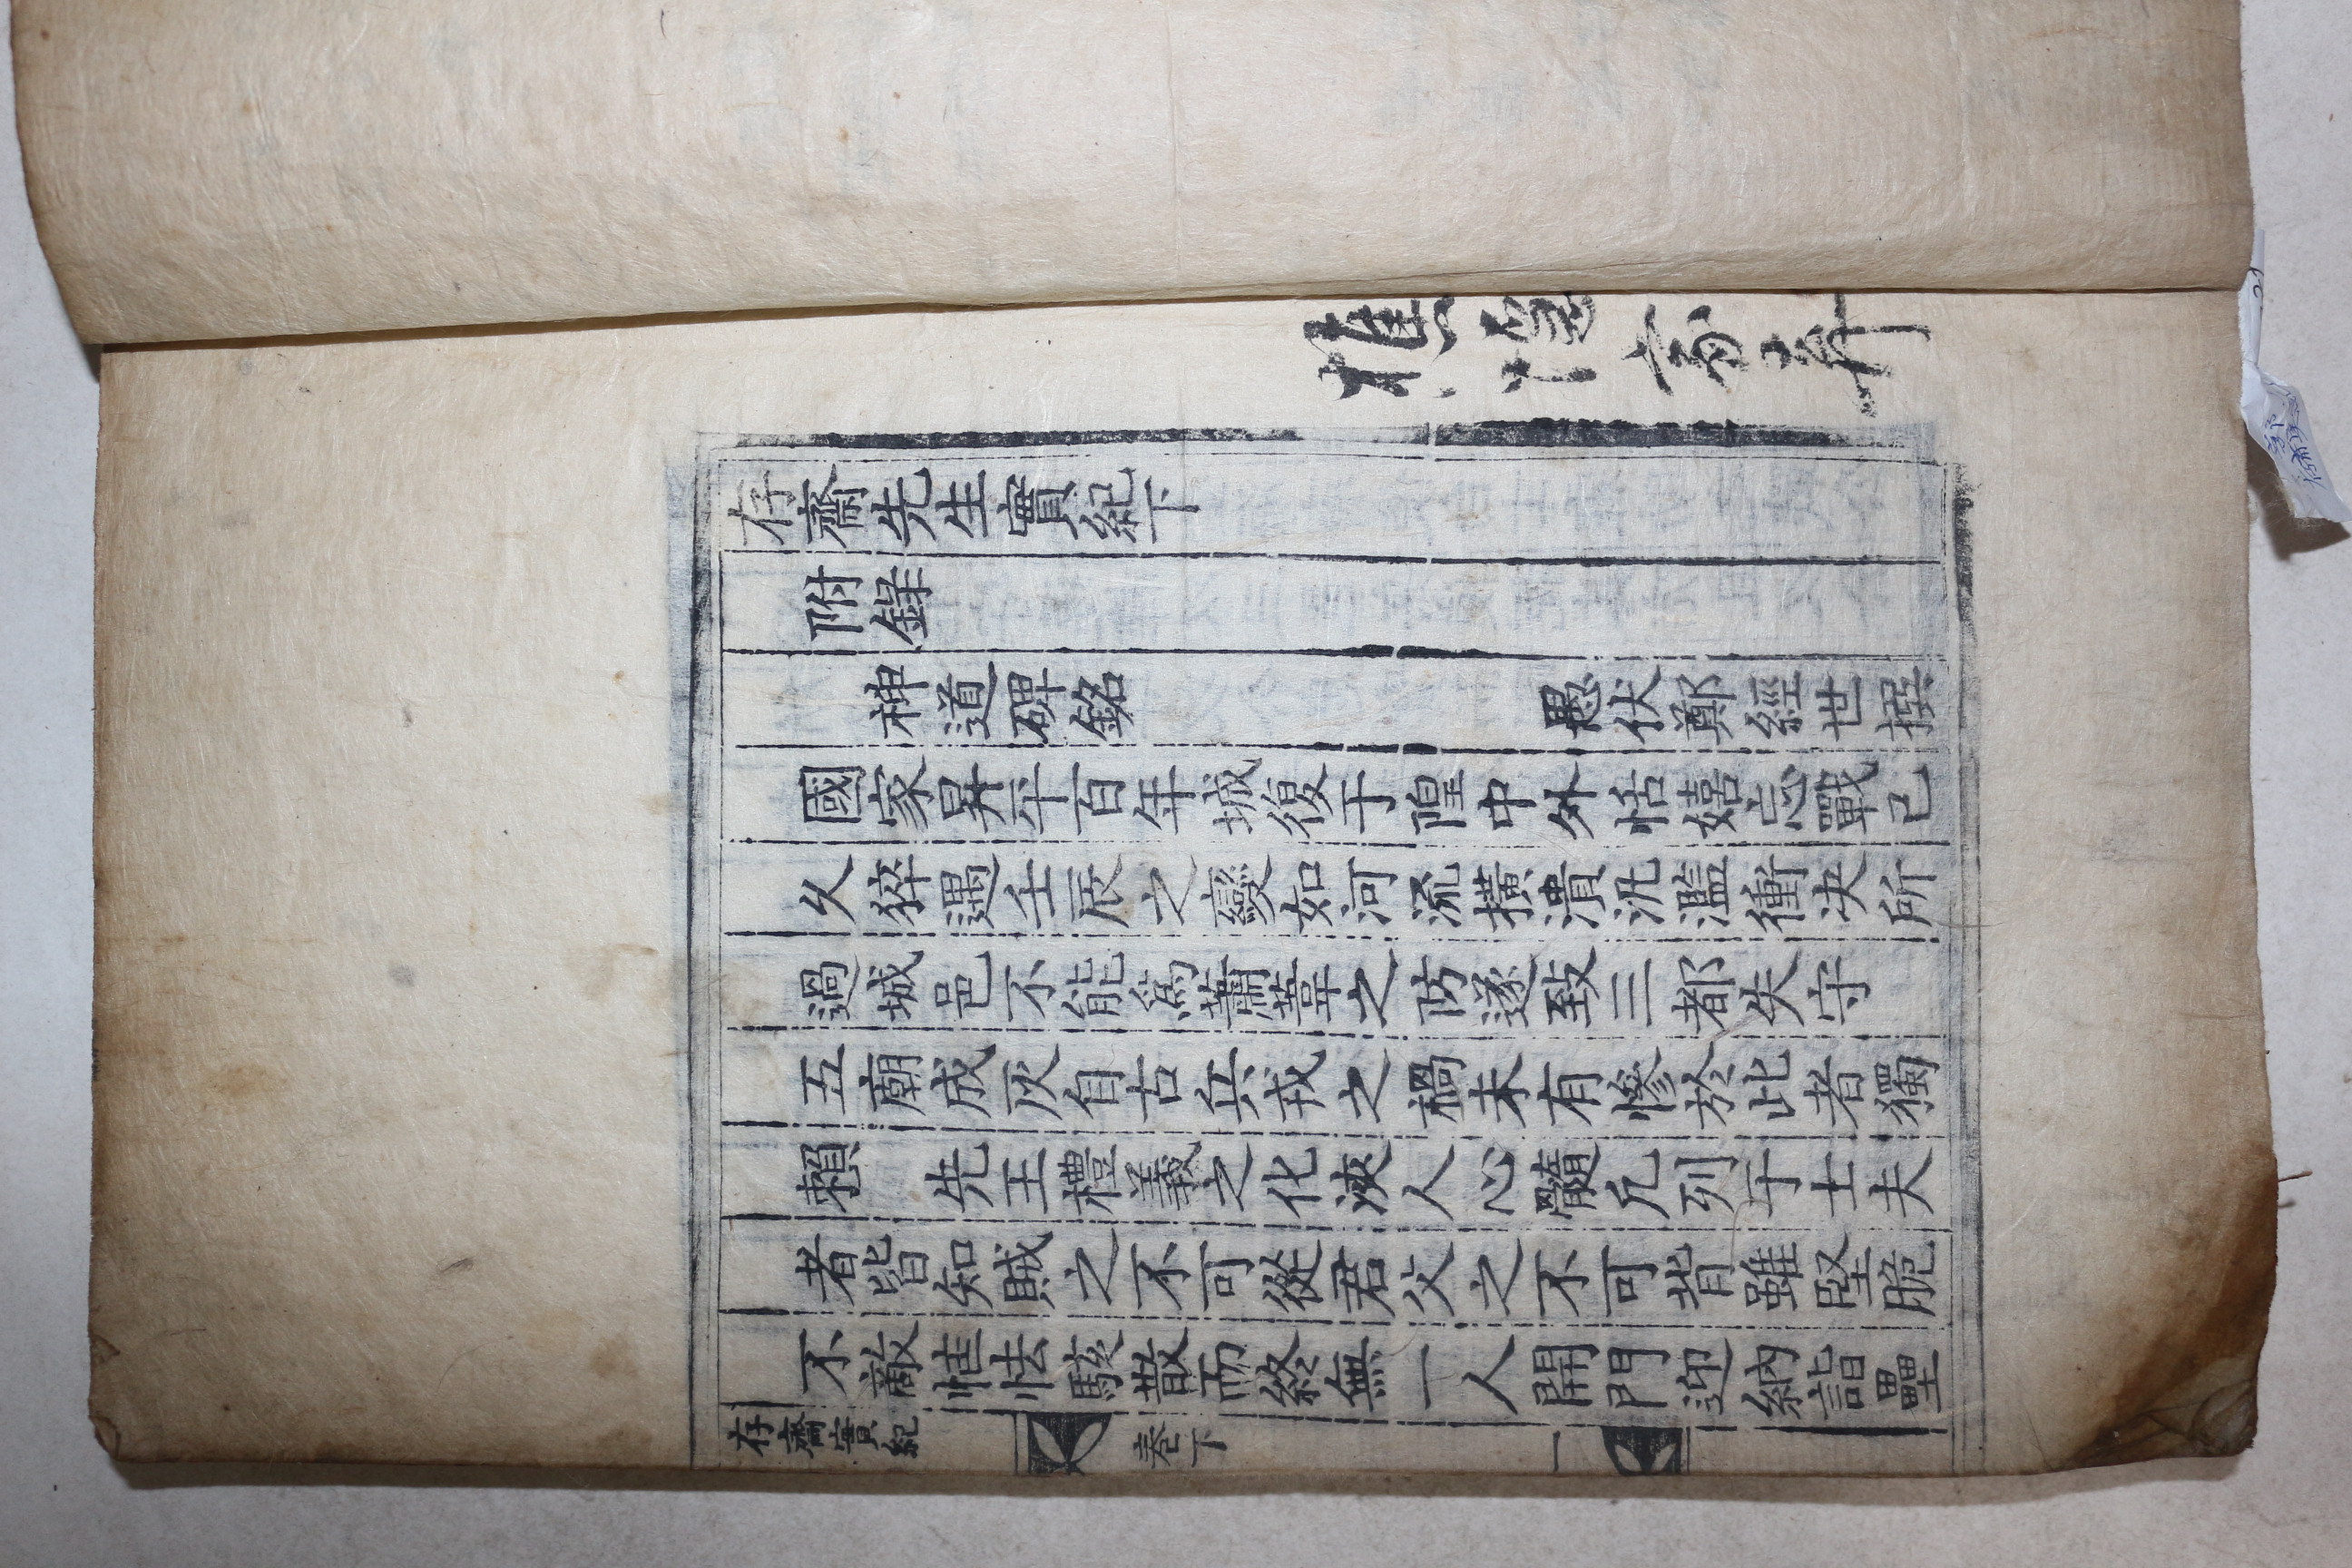 存齋先生實紀下
附錄
神道碑銘 愚伏鄭經世撰
國家昇平百年城復于隍中外恬嬉忘戰已
久猝遇壬辰之變如河流擴潰汎濫衝决所
過城邑不能爲蕭葦之防遂致三都失守
五廟成灰自古兵戎之禍未有慘於此者獨
賴 先王禮義之化浹人心髓凡列于士夫
者皆知賊之不可從君父之不可背雖堅脆
不敵恇怯駭散而終無一人開門迎納詣壘
存齋實紀 卷下 一